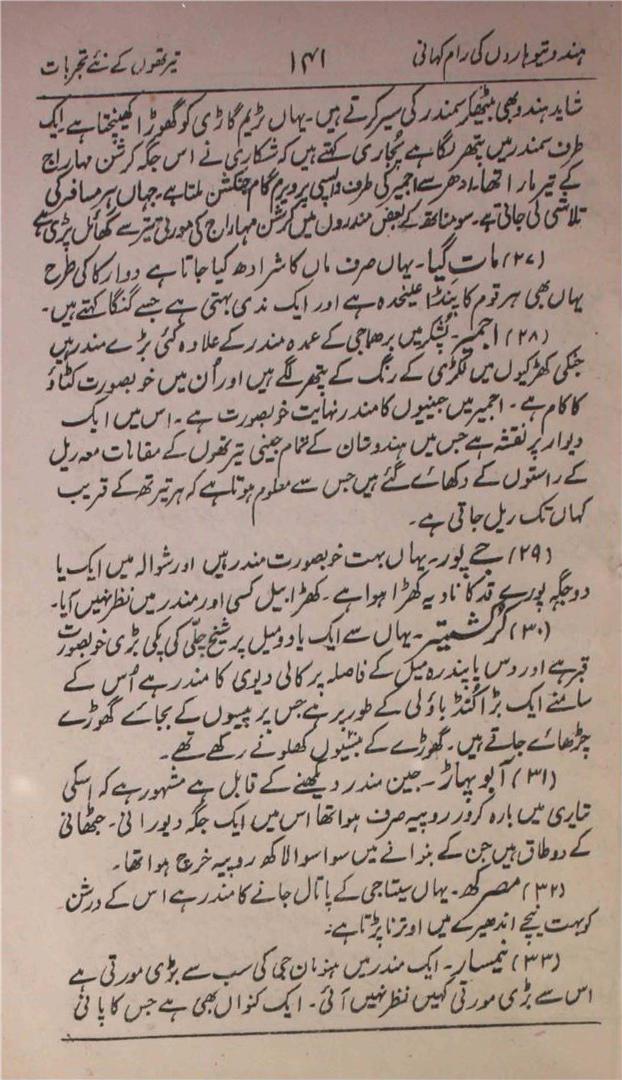 ہندو تیوہاروں کی رام کہانی ۱۴۱ تیرتھوں کے نئے تجربات
شاید ہندو بھی بیٹھکر سمندر کی سیر کرتے ہیں۔ یہاں ٹریم گاڑی کو گھوڑا کھینچتا ہے۔ ایک
طرف سمندر میں پتھر لگا ہے پُجاری کہتے ہیں کہ شکاری نے اس جگہ کرشن مہاراج
کے تیر مارا تھا۔ ادھر سے اجمیر کی طرف واپسی پر ویرم گام جنکشن ملتا ہے۔ جہاں ہر مسافر کی
تلاشی لی جاتی ہے۔ سومناتھ کے بعض مندروں میں کرشن مہاراج کی مورتی تیر سے گھائل پڑی ہے
(۲۷) مات گیا۔ یہاں صرف ماں کا شرادھ کیا جاتا ہے دوارکا کی طرح
یہاں بھی ہر قوم کا پنڈا علیحدہ ہے اور ایک ندی بہتی ہے جسے گنگا کہتے ہیں۔
(۲۸) اجمیر۔ پُشکر میں برھماجی کے عمدہ مندر کے علاوہ کئی بڑے مندر ہیں
جنکی کھڑکیوں میں لکڑی کے رنگ کے پتھر لگے ہیں اور اُن میں خوبصورت کٹاؤ
کا کام ہے۔ اجمیر میں جینیوں کا مندر نہایت خوبصورت ہے۔ اس میں ایک
دیوار پر نقشہ ہے جس میں ہندوستان کے تمام جینی تیرتھوں کے مقامات معہ ریل
کے راستوں کے دکھائے گئے ہیں جس سے معلوم ہوتا ہے کہ ہر تیرتھ کے قریب
کہاں تک ریل جاتی ہے۔
(۲۹) جے پور۔ یہاں بہت خوبصورت مندر ہیں اور شوالہ میں ایک یا
دو جگہ پورے قد کا نادیہ کھڑا ہوا ہے۔ کھڑا بیل کسی اور مندر میں نظر نہیں آیا۔
(۳۰) کُرکشیتر۔ یہاں سے ایک یا دو میل پر شیخ چلّی کی پکی بڑی خوبصورت
قبر ہے اور دس یا پندرہ میل کے فاصلہ پر کالی دیوی کا مندر ہے اُس کے
سامنے ایک بڑا کُنڈ باؤلی کے طور پر ہے جس پر پیسوں کے بجائے گھوڑے
چڑھائے جاتے ہیں۔ گھوڑے کے بیسیوں کھلونے رکھے تھے۔
(۳۱) آبو پہاڑ۔ جین مندر دیکھنے کے قابل ہے مشہور ہے کہ اسکی
تیاری میں بارہ کرور روپیہ صرف ہوا تھا اس میں ایک جگہ دیورانی۔ جٹھانی
کے دو طاق ہیں جن کے بنوانے میں سوا سوا لاکھ روپیہ خرچ ہوا تھا۔
(۳۲) مصرکھ۔ یہاں سیتاجی کے پاتال جانے کا مندر ہے اس کے درشن
کو بہت نیچے اندھیرے میں اوترنا پڑتا ہے۔
(۳۳) نیمسار۔ ایک مندر میں ہنومان جی کی سب سے بڑی مورتی ہے
اس سے بڑی مورتی کہیں نظر نہیں آئی۔ ایک کنواں بھی ہے جس کا پانی